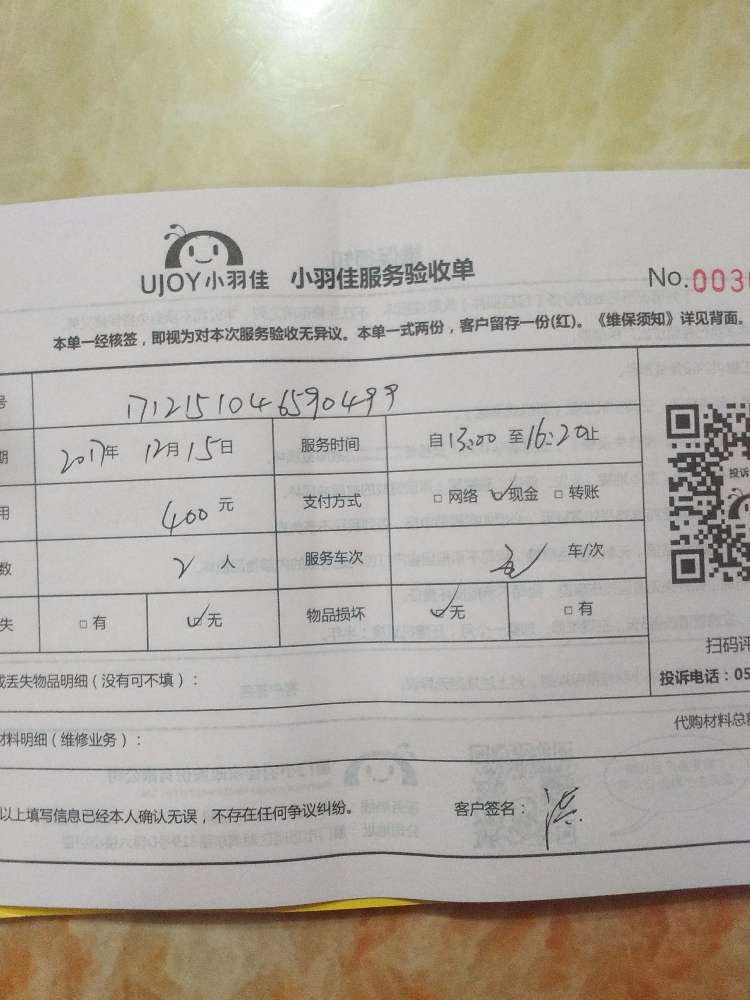 UJOY小羽佳 小羽佳服务验收单 No.003
本单一经核签，即视为对本次服务验收无异议。本单一式两份，客户留存一份(红)。《维保须知》详见背面。
号 1712151046590499
期 2017年 12月 15日 服务时间 自13:00 至16:20止
用 400 元 支付方式 □网络 ☑现金 □转账
数 2 人 服务车次 车/次
失 □有 ☑无 物品损坏 ☑无 □有
投诉
扫码评
投诉电话：05
或丢失物品明细（没有可不填）：
材料明细（维修业务）： 代购材料总
以上填写信息已经本人确认无误，不存在任何争议纠纷。 客户签名：